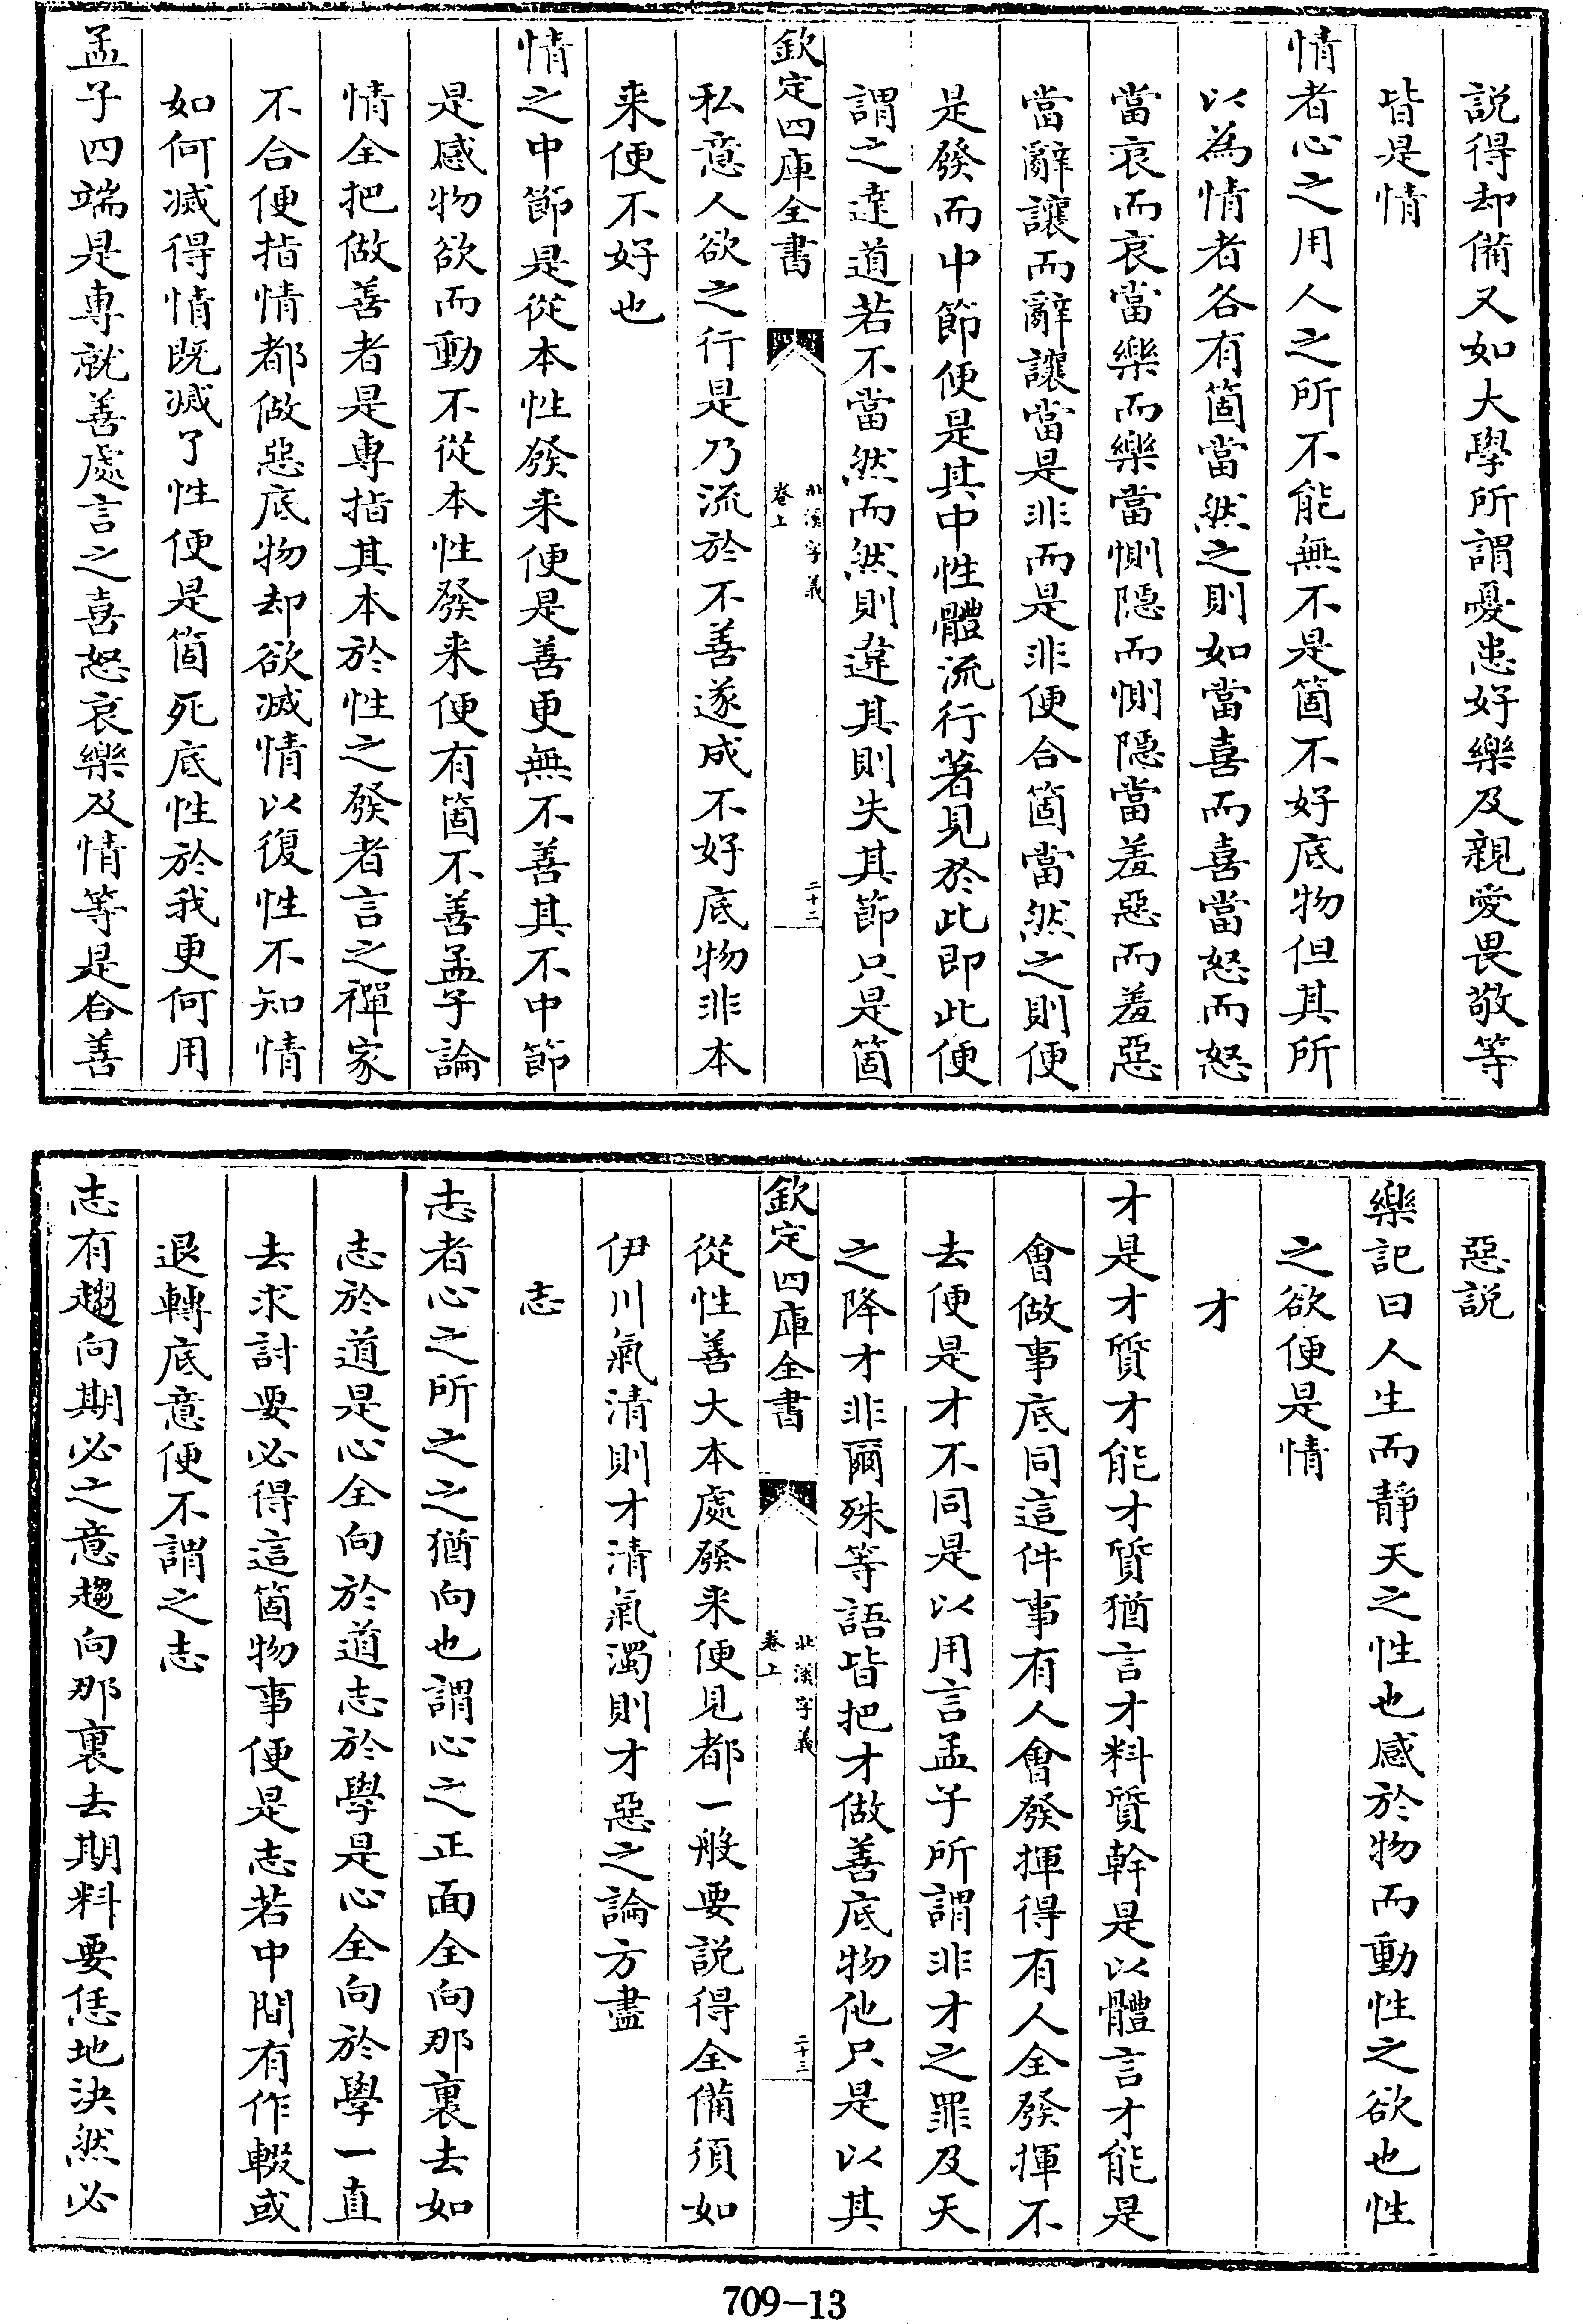 說得却備又如大學所謂憂患好樂及親愛畏敬等
皆是情
情者心之用人之所不能無不是箇不好底物但其所
以為情者各有箇當然之則如當喜而喜當怒而怒
當哀而哀當樂而樂當惻隠而惻隠當羞惡而羞惡
當辭讓而辭讓當是非而是非便合箇當然之則便
是發而中節便是其中性體流行著見於此即此便
謂之達道若不當然而然則違其則失其節只是箇
欽定四庫全書
北溪字義
卷上
二十二
私意人欲之行是乃流於不善遂成不好底物非本
来便不好也
情之中節是從本性發来便是善更無不善其不中節
是感物欲而動不從本性發来便有箇不善孟子論
情全把做善者是專指其本於性之發者言之禪家
不合便指情都做惡底物却欲滅情以復性不知情
如何滅得情既滅了性便是箇死底性於我更何用
孟子四端是專就善處言之喜怒哀樂及情等是合善
惡説
樂記曰人生而靜天之性也感於物而動性之欲也性
之欲便是情
才
才是才質才能才質猶言才料質幹是以體言才能是
會做事底同這件事有人會發揮得有人全發揮不
去便是才不同是以用言孟子所謂非才之罪及天
之降才非爾殊等語皆把才做善底物他只是以其
欽定四庫全書
北溪字義
卷上
二十三
從性善大本處發来便見都一般要説得全備須如
伊川氣清則才清氣濁則才惡之論方盡
志
志者心之所之之猶向也謂心之正面全向那裏去如
志於道是心全向於道志於學是心全向於學一直
去求討要必得這箇物事便是志若中間有作輟或
退轉底意便不謂之志
志有趨向期必之意趨向那裏去期料要恁地決然必
709-13